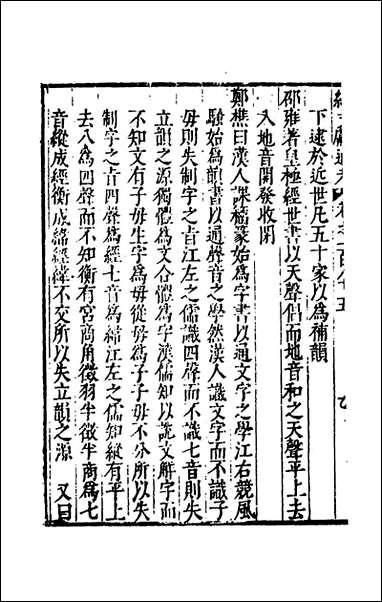 下逮於近世凡五十家以為補韻
邵雍著皇極經世書以天聲倡而地音和之天聲平上去
入地音開發收閉
鄭樵曰漢人課籀篆始為字書以通文字之學江右競風
騷始為韻書以通聲音之學然漢人識文字而不識子
毋則失制字之㫖江左之儒識四聲而不識七音則失
立韻之源獨體為文合體為字漢儒知以說文解字而
不知文有子毋生字為毋從毋為子子毋不分所以失
制字之㫖四聲為經七音為緯江左之儒知縱有平上
去入為四聲而不知衡有宮商角徵羽半徵半商為七
音縱成經衡成緯經緯不交所以失立韻之源 又曰